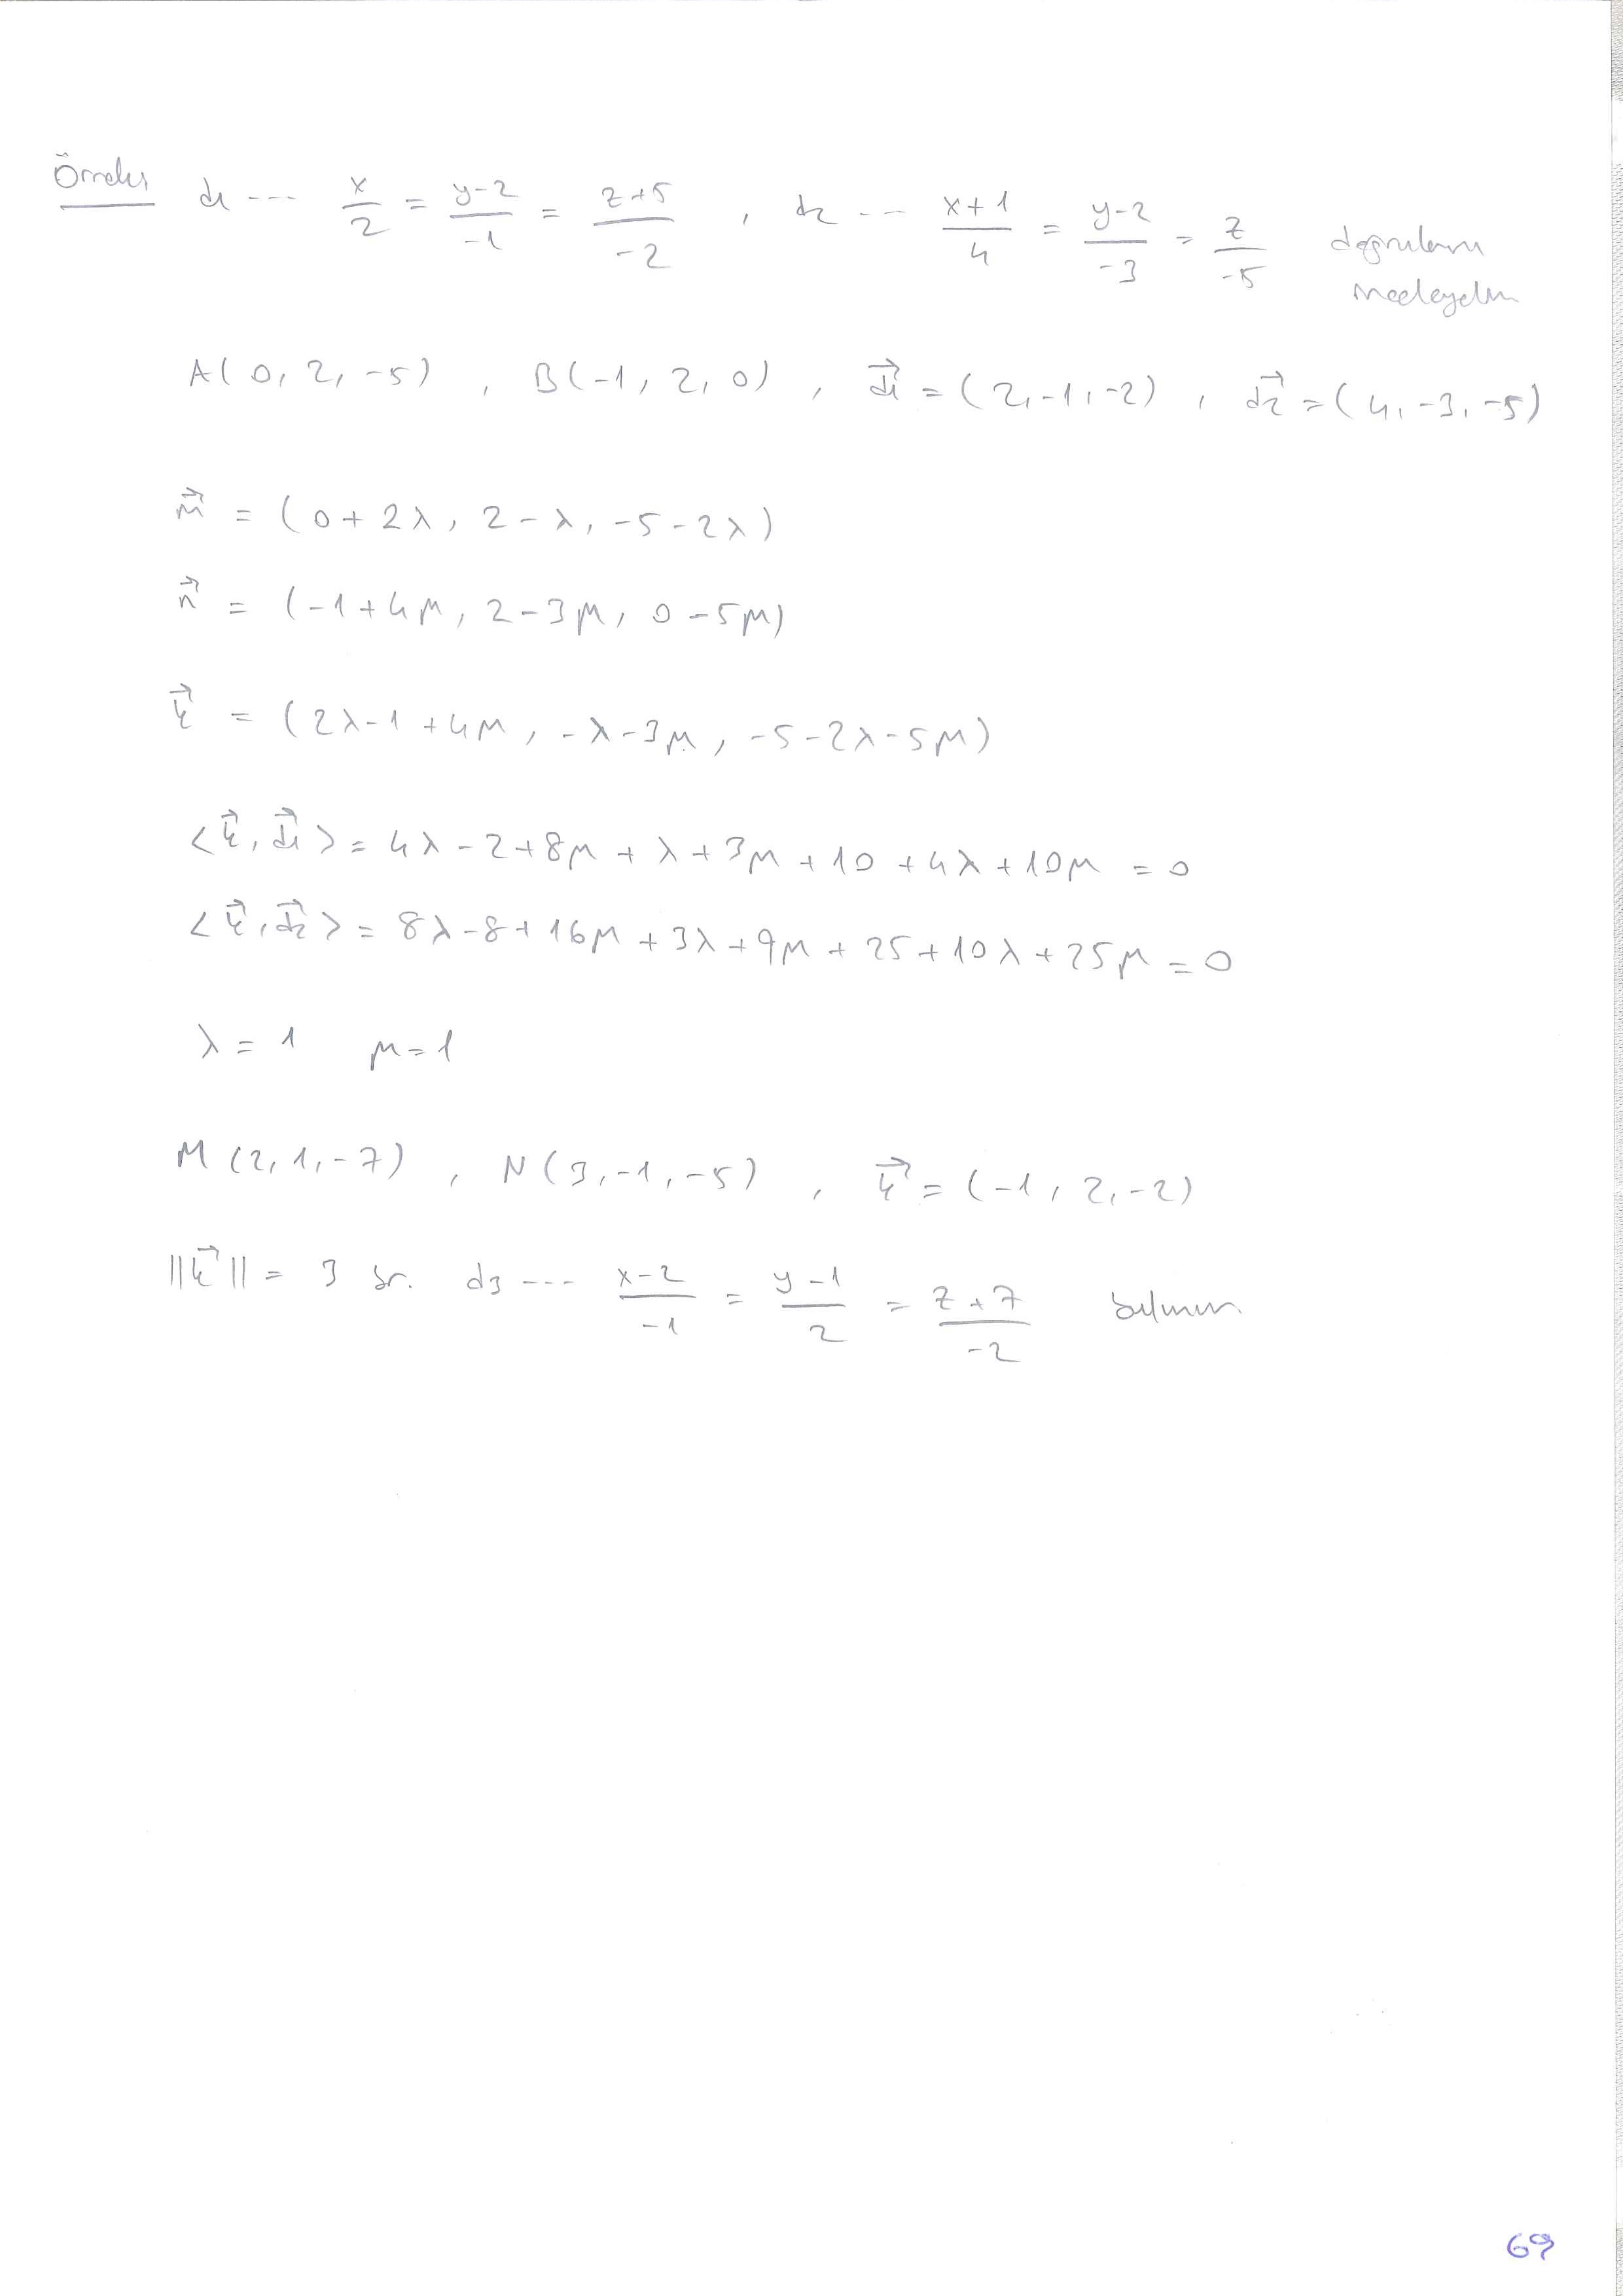 Örnek d₁ --- x/2 = y-2/-1 = z+5/-2 , d₂ --- x+1/4 = y-2/-3 = z/-5 doğrularını
inceleyelim
A(0, 2, -5) , B(-1, 2, 0) , d₁⃗ = (2, -1, -2) , d₂⃗ = (4, -3, -5)
m⃗ = (0+2λ, 2-λ, -5-2λ)
n⃗ = (-1+4μ, 2-3μ, 0-5μ)
k⃗ = (2λ-1+4μ, -λ-3μ, -5-2λ-5μ)
<k⃗, d₁⃗> = 4λ-2+8μ+λ+3μ+10+4λ+10μ = 0
<k⃗, d₂⃗> = 8λ-8+16μ+3λ+9μ+25+10λ+25μ = 0
λ = 1 μ = 1
M(2, 1, -7) , N(3, -1, -5) , k⃗ = (-1, 2, -2)
||k⃗|| = 3 br. d₃ --- x-2/-1 = y-1/2 = z+7/-2 bulunur.
69